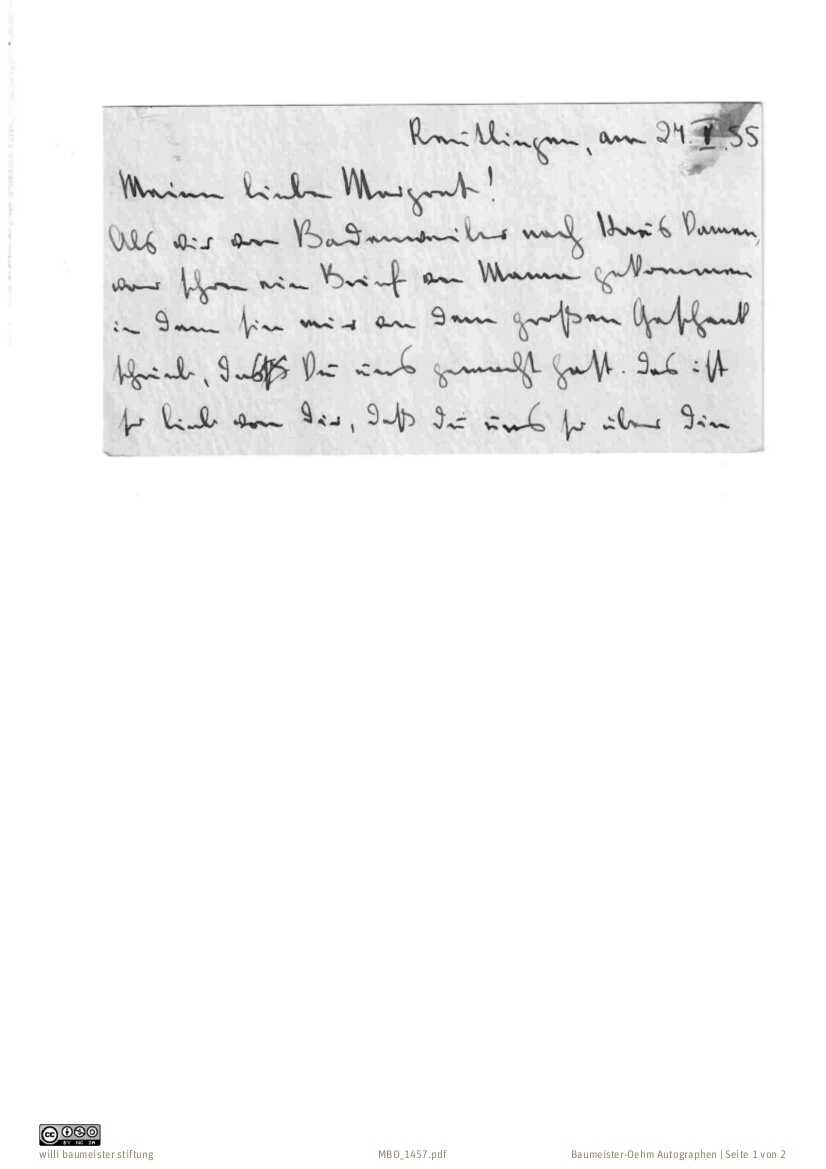 Reutlingen, am 24. V. 55
Meine liebe Margret!
Als wir von Badenweiler nach Haus kamen,
war schon ein Brief von Mama gekommen
in dem sie mir von dem großen Geschenk
schrieb, daß Du uns gemacht hast. Das ist
so lieb von Dir, daß Du uns so über Dein
BY NC SA
willi baumeister stiftung
MBO_1457.pdf
Baumeister-Oehm Autographen | Seite 1 von 2